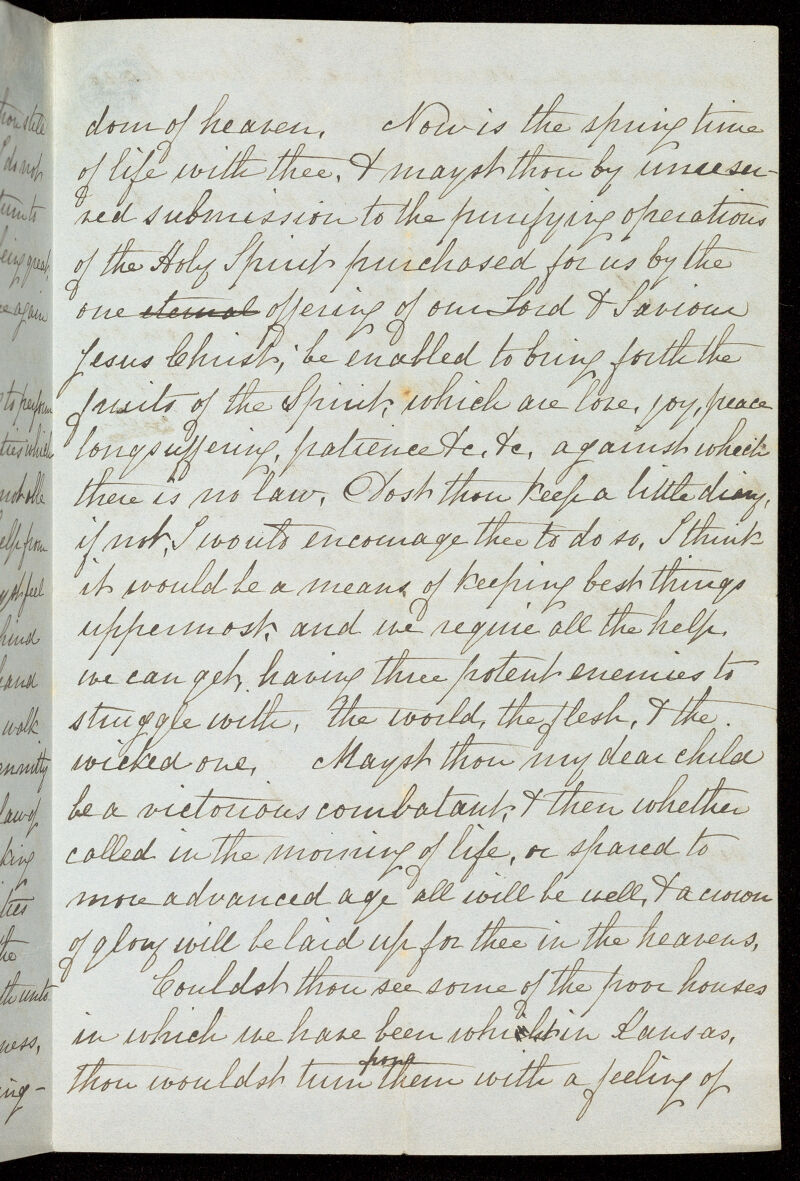 dom of heaven. Now is the spring time
of life with thee, & mayst thou by unreser-
ved submission to the purifying operations
of the Holy Spirit purchased for us by the
one eternal offering of our Lord & Saviour
Jesus Christ, be enabled to bring forth the
fruits of the Spirit, which are love, joy, peace
longsuffering, patience &c, &c, against which
there is no law. Dost thou keep a little diary,
if not, I would encourage thee to do so, I think
it would be a means of keeping best things
uppermost, and we require all the help
we can get, having three potent enemies to
struggle with, the world, the flesh, & the
wicked one. Mayst thou my dear child
be a victorious combatant, & then whether
called in the morning of life, or spared to
more advanced age all will be well, & a crown
of glory will be laid up for thee in the heavens.
Couldst thou see some of the poor houses
in which we have been whilst in Kansas,
thou wouldst turn from them with a feeling of